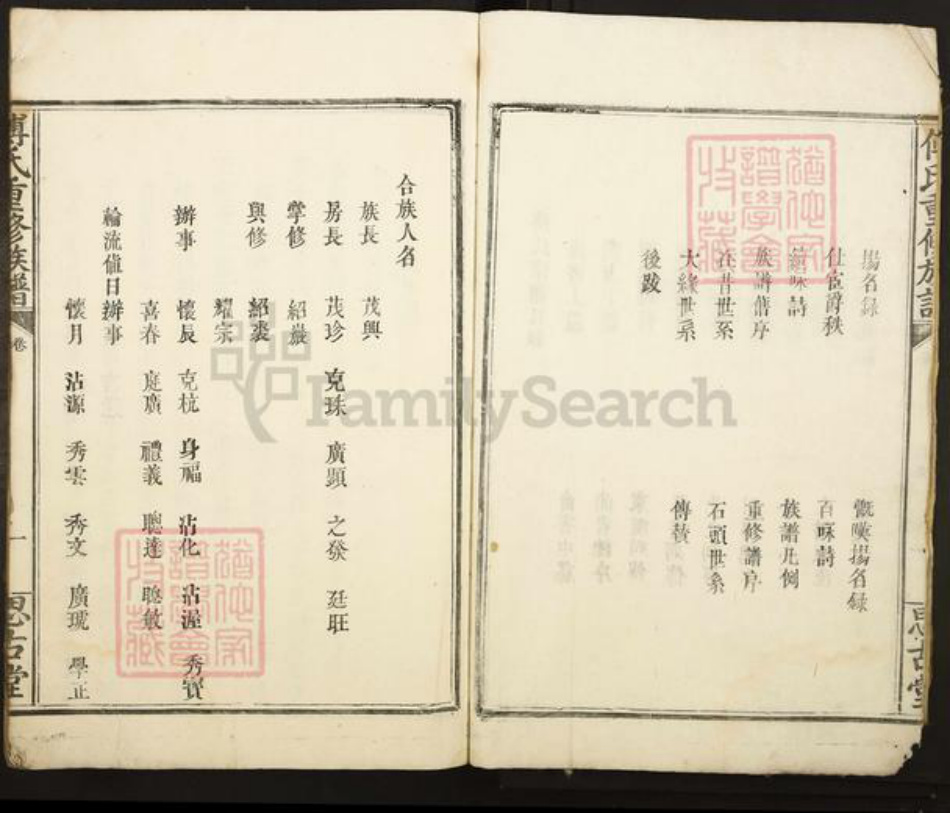 傅氏重修族譜
思古堂
揚名錄
慨嘆揚名錄
仕宦爵秩
百咏詩
詩
族譜凡例
族譜舊序
重修譜序
在昔世系
石頭世系
大緣世系
傳贊
後跋
合族人名
族長 茂興
房長 茂珍 克珠 廣顯 之發 廷旺
掌修 紹嚴
與修 紹裘
耀宗
辦事 懷辰 克杭 身福 沾化 沾渥 秀寶
喜春 庭廣 禮義 聰達 聰敏
輪流值日辦事
懷月 沾源 秀雲 秀文 廣琥 學正
傅氏重修族譜
卷
一
思古堂
猶他家譜學會收藏
猶他家譜學會收藏
FamilySearch